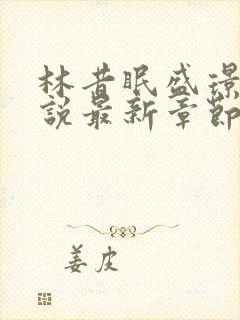 林昔眠盛璟
說最新章節
姜皮